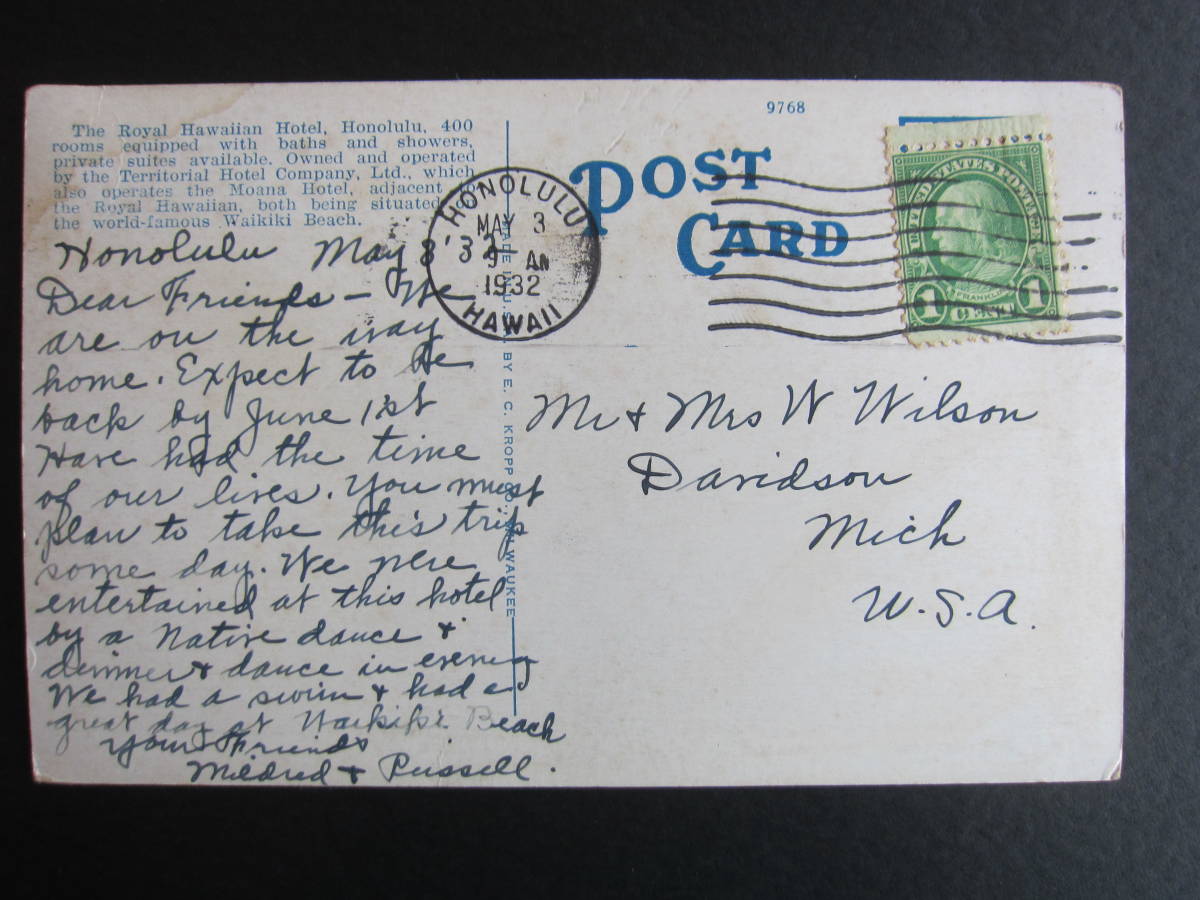 9768
The Royal Hawaiian Hotel, Honolulu, 400
rooms equipped with baths and showers,
private suites available. Owned and operated
by the Territorial Hotel Company, Ltd., which
also operates the Moana Hotel, adjacent to
the Royal Hawaiian, both being situated
the world-famous Waikiki Beach.
POST
CARD
HONOLULU
MAY 3
9 AM
1932
HAWAII
UNITED STATES POSTAGE
FRANKLIN
1 CENT 1
BY E. C. KROPP CO., MILWAUKEE
Honolulu May 3 '32
Dear Friends - We
are on the way
home. Expect to be
back by June 1st
Have had the time
of our lives. You must
plan to take this trip
some day. We were
entertained at this hotel
by a Native dance &
dinner & dance in evening
We had a swim & had a
great day at Waikiki Beach
Your Friends
Mildred & Russell.
Mr & Mrs W Wilson
Davidson
Mich
U.S.A.